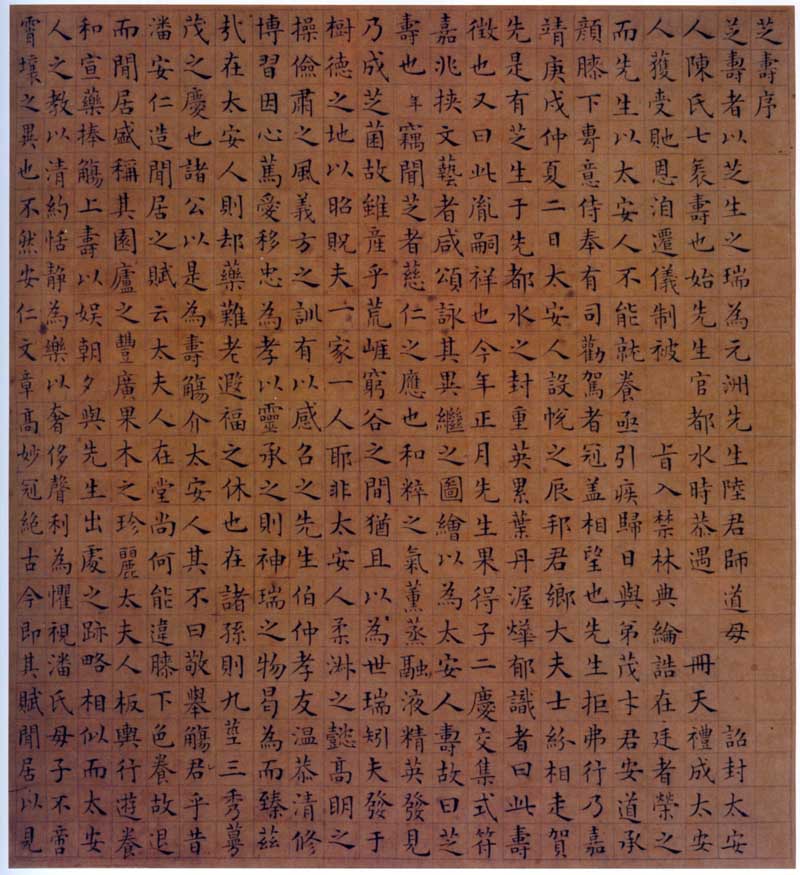 芝壽序
芝壽者以芝生之瑞為元洲先生陸君師道母 詔封太安
人陳氏七袠壽也始先生官都水時恭遇 冊天禮成太安
人獲受貤恩洎遷儀制被 旨入禁林典綸誥在廷者榮之
而先生以太安人不能就養亟引疾歸日與弟茂卞君安道承
顔膝下專意侍奉有司勸駕者冠盖相望也先生拒弗行乃嘉
靖庚戌仲夏二日太安人設帨之辰邦君鄉大夫士紛相走賀
先是有芝生于先都水之封重英累葉丹渥燁郁識者曰此壽
徵也又曰此胤嗣祥也今年正月先生果得子二慶交集式符
嘉兆挾文藝者咸頌詠其異繼之圖繪以為太安人壽故曰芝
壽也年竊聞芝者慈仁之應也和粹之氣薰蒸融液精英發見
乃成芝菌故雖産乎荒崕窮谷之間猶且以為世瑞矧夫發于
樹德之地以昭貺夫一家一人耶非太安人柔淋之懿高明之
操儉肅之風義方之訓有以感召之先生伯仲孝友温恭清修
博習因心篤愛移忠為孝以靈承之則神瑞之物曷為而臻茲
㢤在太安人則却藥難老遐福之休也在諸孫則九莖三秀蕚
茂之慶也諸公以是為壽觴介太安人其不曰敬舉觴君乎昔
潘安仁造閒居之賦云太夫人在堂尚何能違膝下色養故退
而閒居盛稱其園廬之豐廣果木之珍麗太夫人板輿行遊養
和宣藥捧觴上壽以娱朝夕與先生出處之跡略相似而太安
人之教以清約恬静為樂以奢侈聲利為懼視潘氏母子不啻
霄壤之異也不然安仁文章高妙冠絶古今即其賦閒居以見